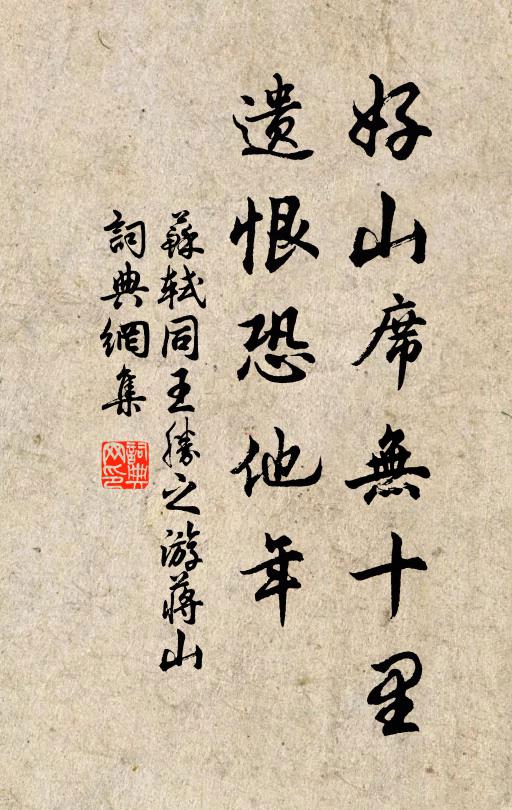 好山席無十里
遗恨恐他年
蘇軾同王勝之游蔣山
詞典網集
詞典网印